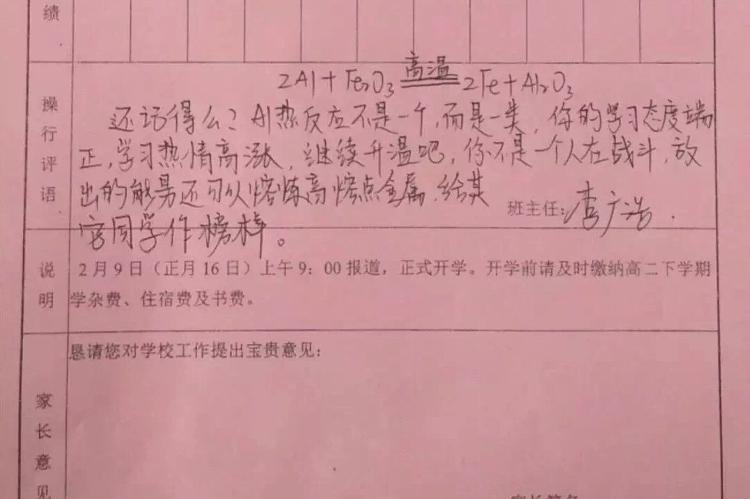 绩
操行评语
2Al+Fe₂O₃ 高温 2Fe+Al₂O₃
还记得么?Al热反应不是一个,而是一类,你的学习态度端
正,学习热情高涨,继续升温吧,你不是一个人在战斗,放
出的能量还可以熔炼高熔点金属,给其
它同学作榜样。
班主任:李广浩.
说明
2月9日(正月16日)上午9:00报道,正式开学。开学前请及时缴纳高二下学期
学杂费、住宿费及书费。
恳请您对学校工作提出宝贵意见:
家长意见